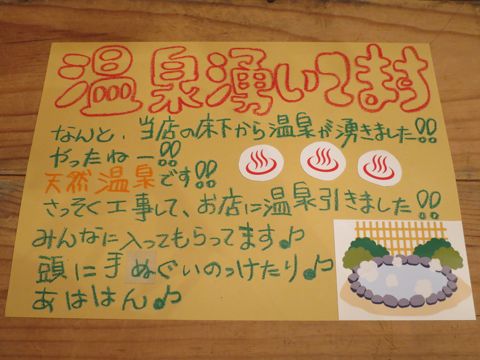 温泉湧いてます
なんと、当店の床下から温泉が湧きました!!
やったねー!!
天然温泉です!!
さっそく工事して、お店に温泉引きました!!
みんなに入ってもらってます♪
頭に手ぬぐいのっけたり♪
あははん♪